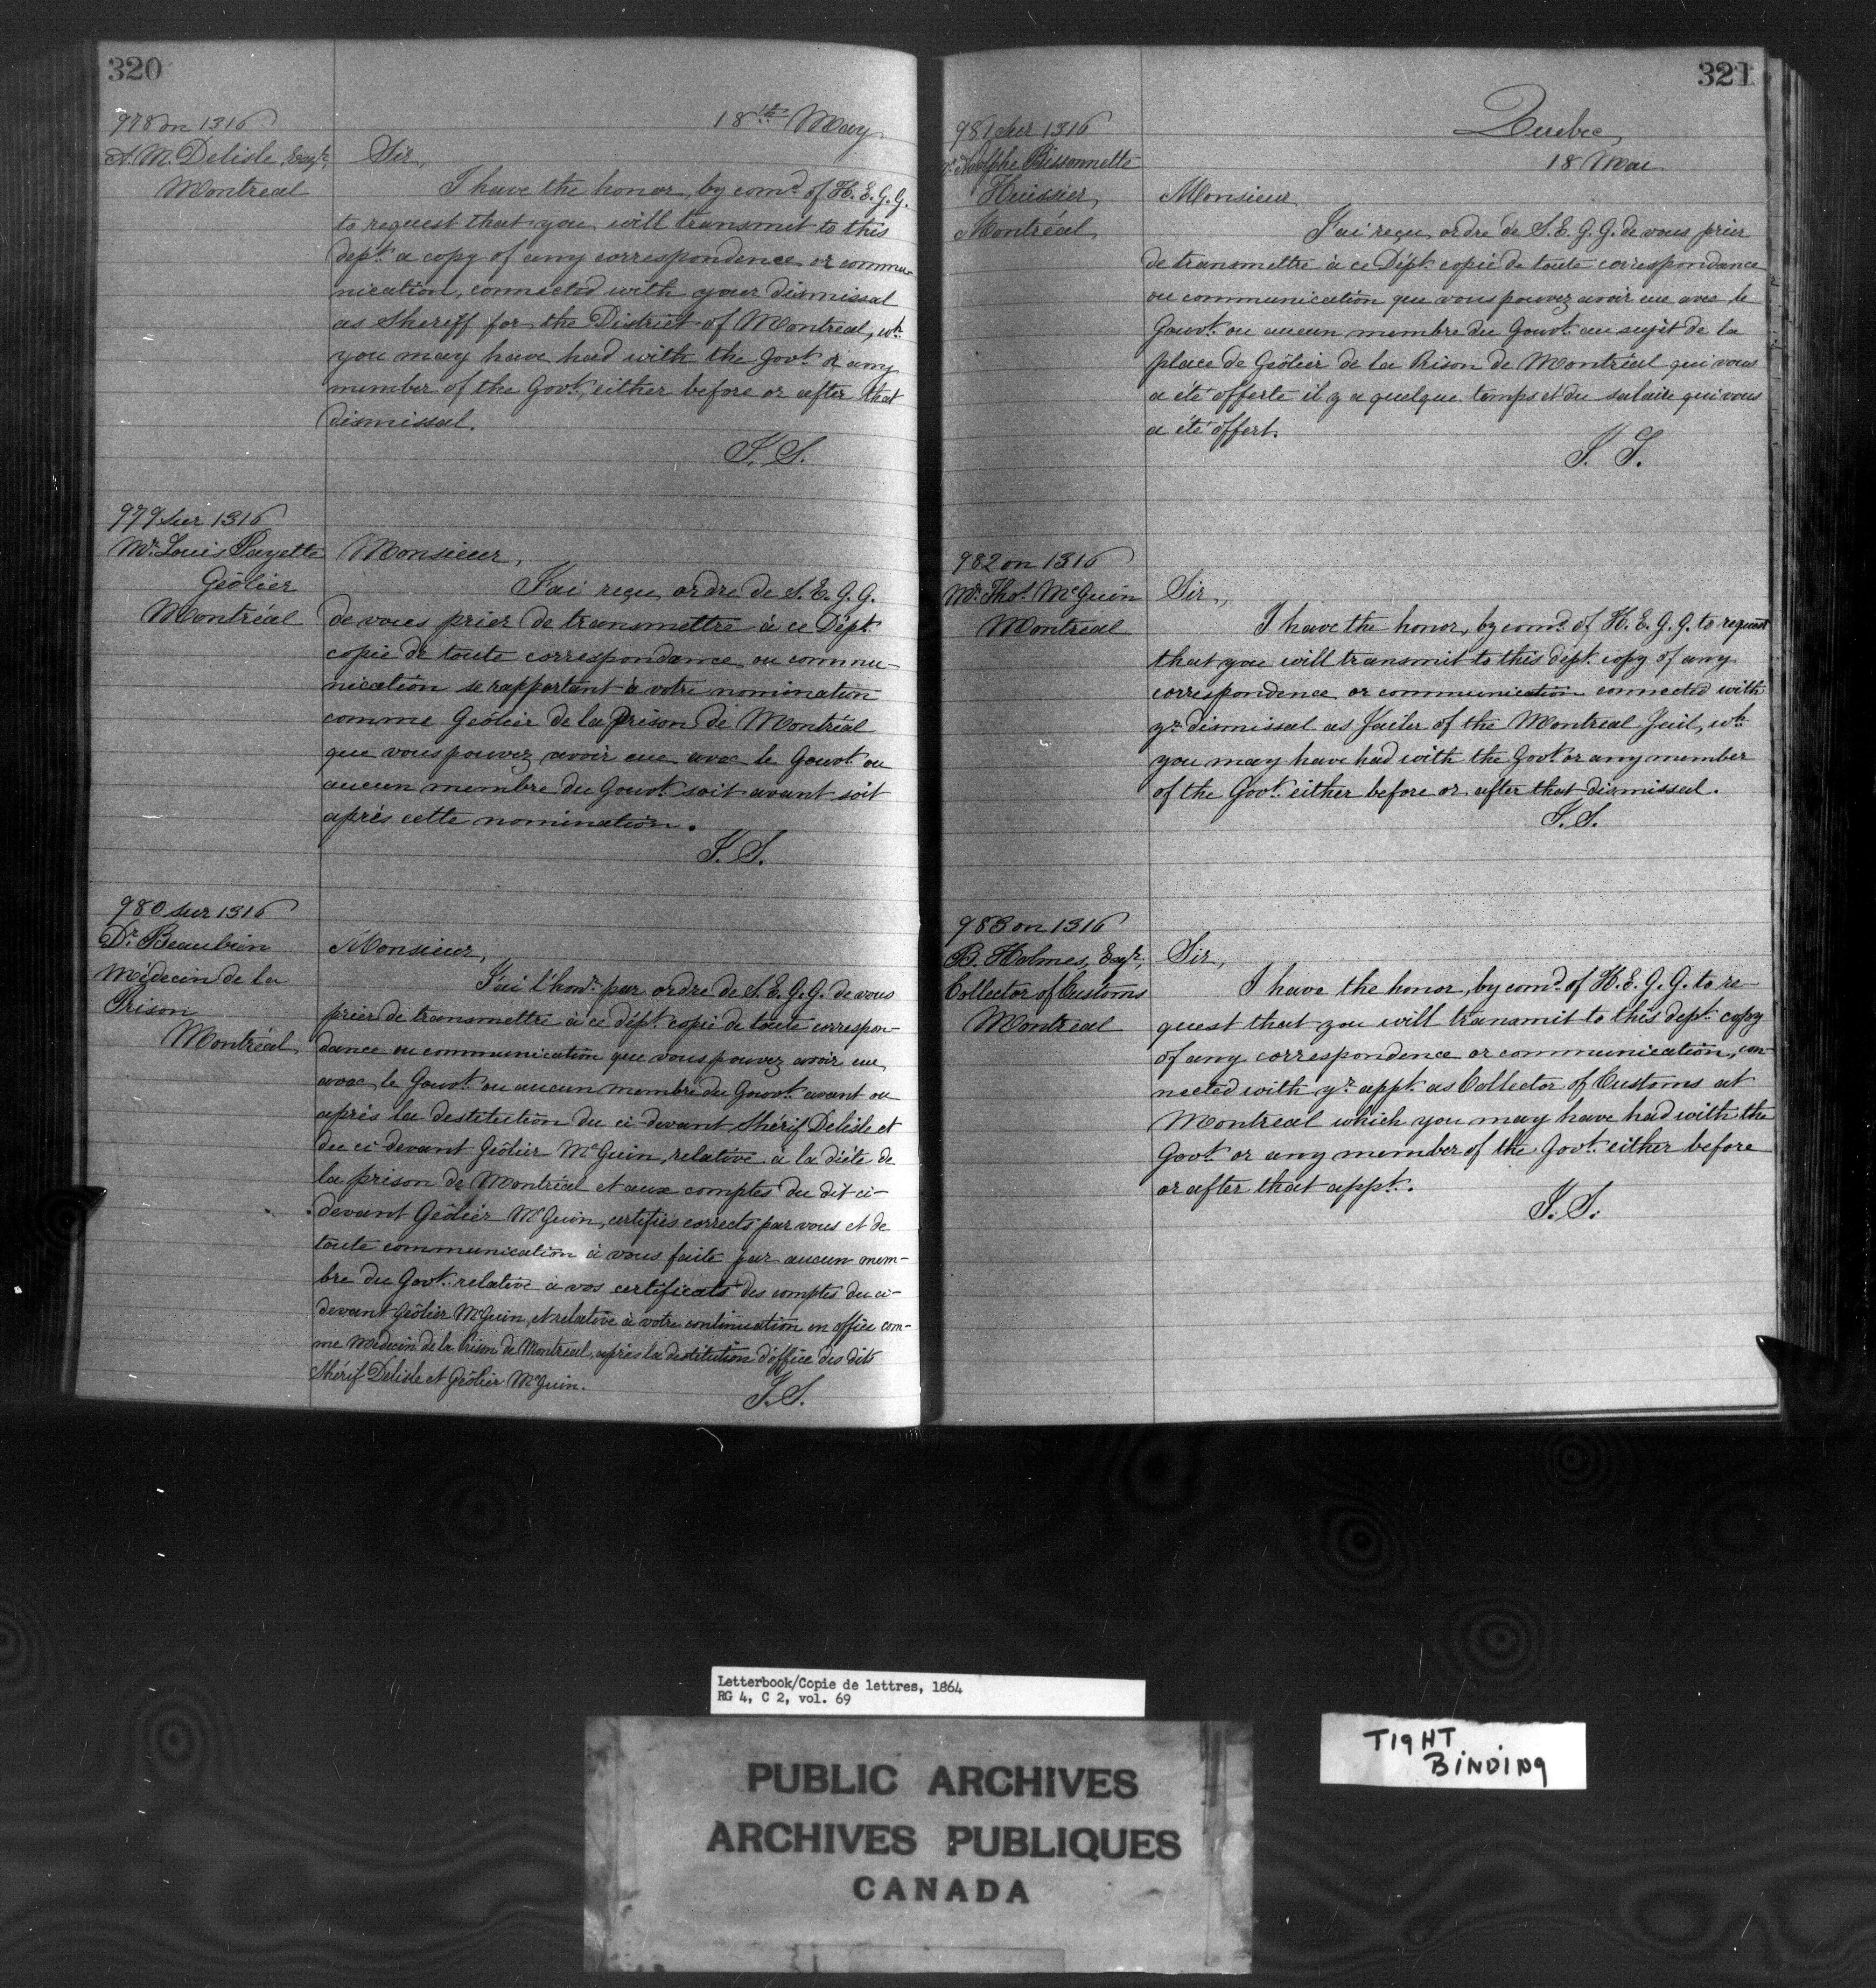 320
978 on 1316
A. M. Delisle, Esqr.,
Montreal
18th May
Sir,
I have the honor, by comd. of H. E. G. G.
to request that you will transmit to this
dept. a copy of any correspondence or commu-
nication, connected with your dismissal
as Sheriff for the District of Montreal, wh.
you may have had with the Govt. or any
member of the Govt., either before or after that
dismissal.
I. S.
979 sur 1316
Mr. Louis Payette
Geôlier
Montréal
Monsieur,
J'ai reçu ordre de S. E. G. G.
de vous prier de transmettre à ce Dépt.
copie de toute correspondance ou commu-
nication se rapportant à votre nomination
comme Geôlier de la Prison de Montréal
que vous pouvez avoir eue avec le Gouvt. ou
aucun membre du Gouvt. soit avant soit
après cette nomination.
I. S.
980 sur 1316
Dr. Beaubien
Médecin de la
Prison
Montréal
Monsieur,
J'ai l'honr. par ordre de S. E. G. G. de vous
prier de transmettre à ce dépt. copie de toute correspon-
dance ou communication que vous pouvez avoir eue
avec le Gouvt. ou aucun membre du Gouvt. avant ou
après la destitution du ci-devant Shérif Delisle et
du ci-devant Geôlier McGuin, relative à la diète de
la prison de Montréal et aux comptes du dit ci-
devant Geôlier McGuin, certifiés corrects par vous et de
toute communication à vous faite par aucun mem-
bre du Govt. relative à vos certificats des comptes du ci-
devant Geôlier McGuin, et relative à votre continuation en office com-
me Médecin de la Prison de Montréal, après la destitution d'office des dits
Shérif Delisle et Geôlier McGuin.
I. S.
321
981 sur 1316
Mr. Adolphe Bissonnette
Huissier,
Montréal
Quebec,
18 Mai
Monsieur
J'ai reçu ordre de S. E. G. G. de vous prier
de transmettre à ce Dépt. copie de toute correspondance
ou communication que vous pouvez avoir eue avec le
Gouvt. ou aucun membre du Gouvt. au sujet de la
place de Geôlier de la Prison de Montréal qui vous
a été offerte il y a quelque temps et du salaire qui vous
a été offert.
I. S.
982 on 1316
Mr. Thos. McGuin
Montreal
Sir,
I have the honor, by comd. of H. E. G. G. to request
that you will transmit to this dept. copy of any
correspondence or communication connected with
yr. dismissal as Jailer of the Montreal Jail, wh.
you may have had with the Govt. or any member
of the Govt. either before or after that dismissal.
I. S.
983 on 1316
B. Holmes, Esqr.,
Collector of Customs
Montreal
Sir,
I have the honor, by comd. of H. E. G. G. to re-
quest that you will transmit to this dept. copy
of any correspondence or communication, con-
nected with yr. appt. as Collector of Customs at
Montreal which you may have had with the
Govt. or any member of the Govt. either before
or after that appt.
I. S.
Letterbook/Copie de lettres, 1864
RG 4, C 2, vol. 69
PUBLIC ARCHIVES
ARCHIVES PUBLIQUES
CANADA
TIGHT
BINDING